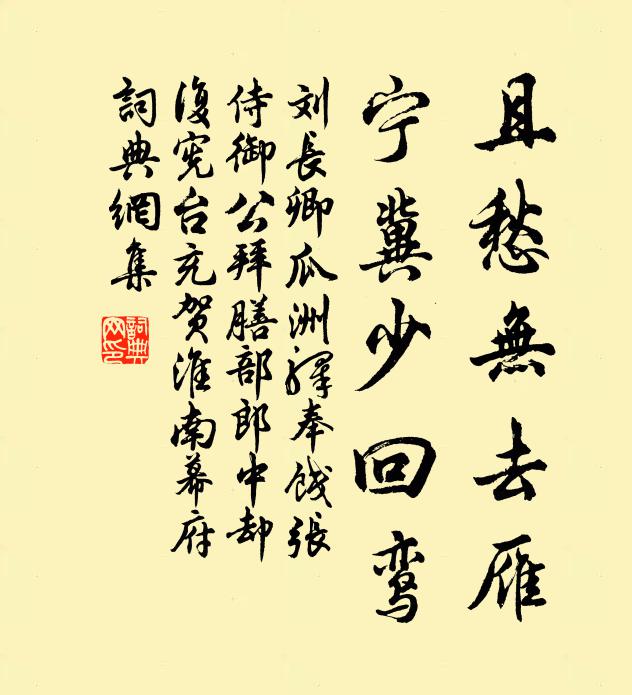 且愁無去雁
宁冀少回鸾
刘長卿瓜洲驛奉餞張
侍御公拜膳部郎中却
復宪台充贺淮南幕府
詞典網集
詞典網印